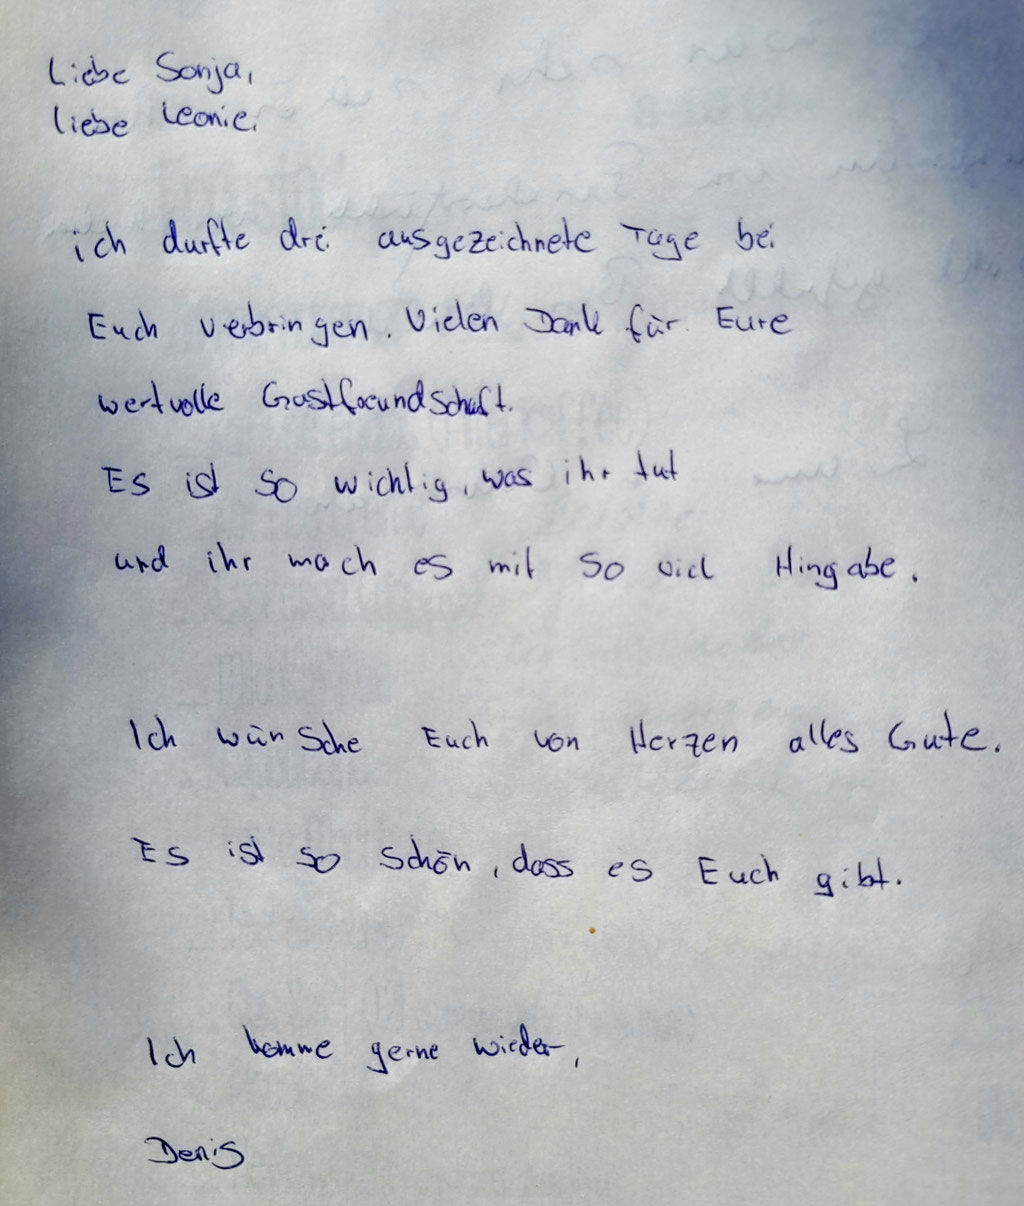 Liebe Sonja,
liebe Leonie,
ich durfte drei ausgezeichnete Tage bei
Euch verbringen. Vielen Dank für Eure
wertvolle Gastfreundschaft.
Es ist so wichtig, was ihr tut
und ihr mach es mit so viel Hingabe.
Ich wünsche Euch von Herzen alles Gute.
Es ist so schön, dass es Euch gibt.
Ich komme gerne wieder,
Denis